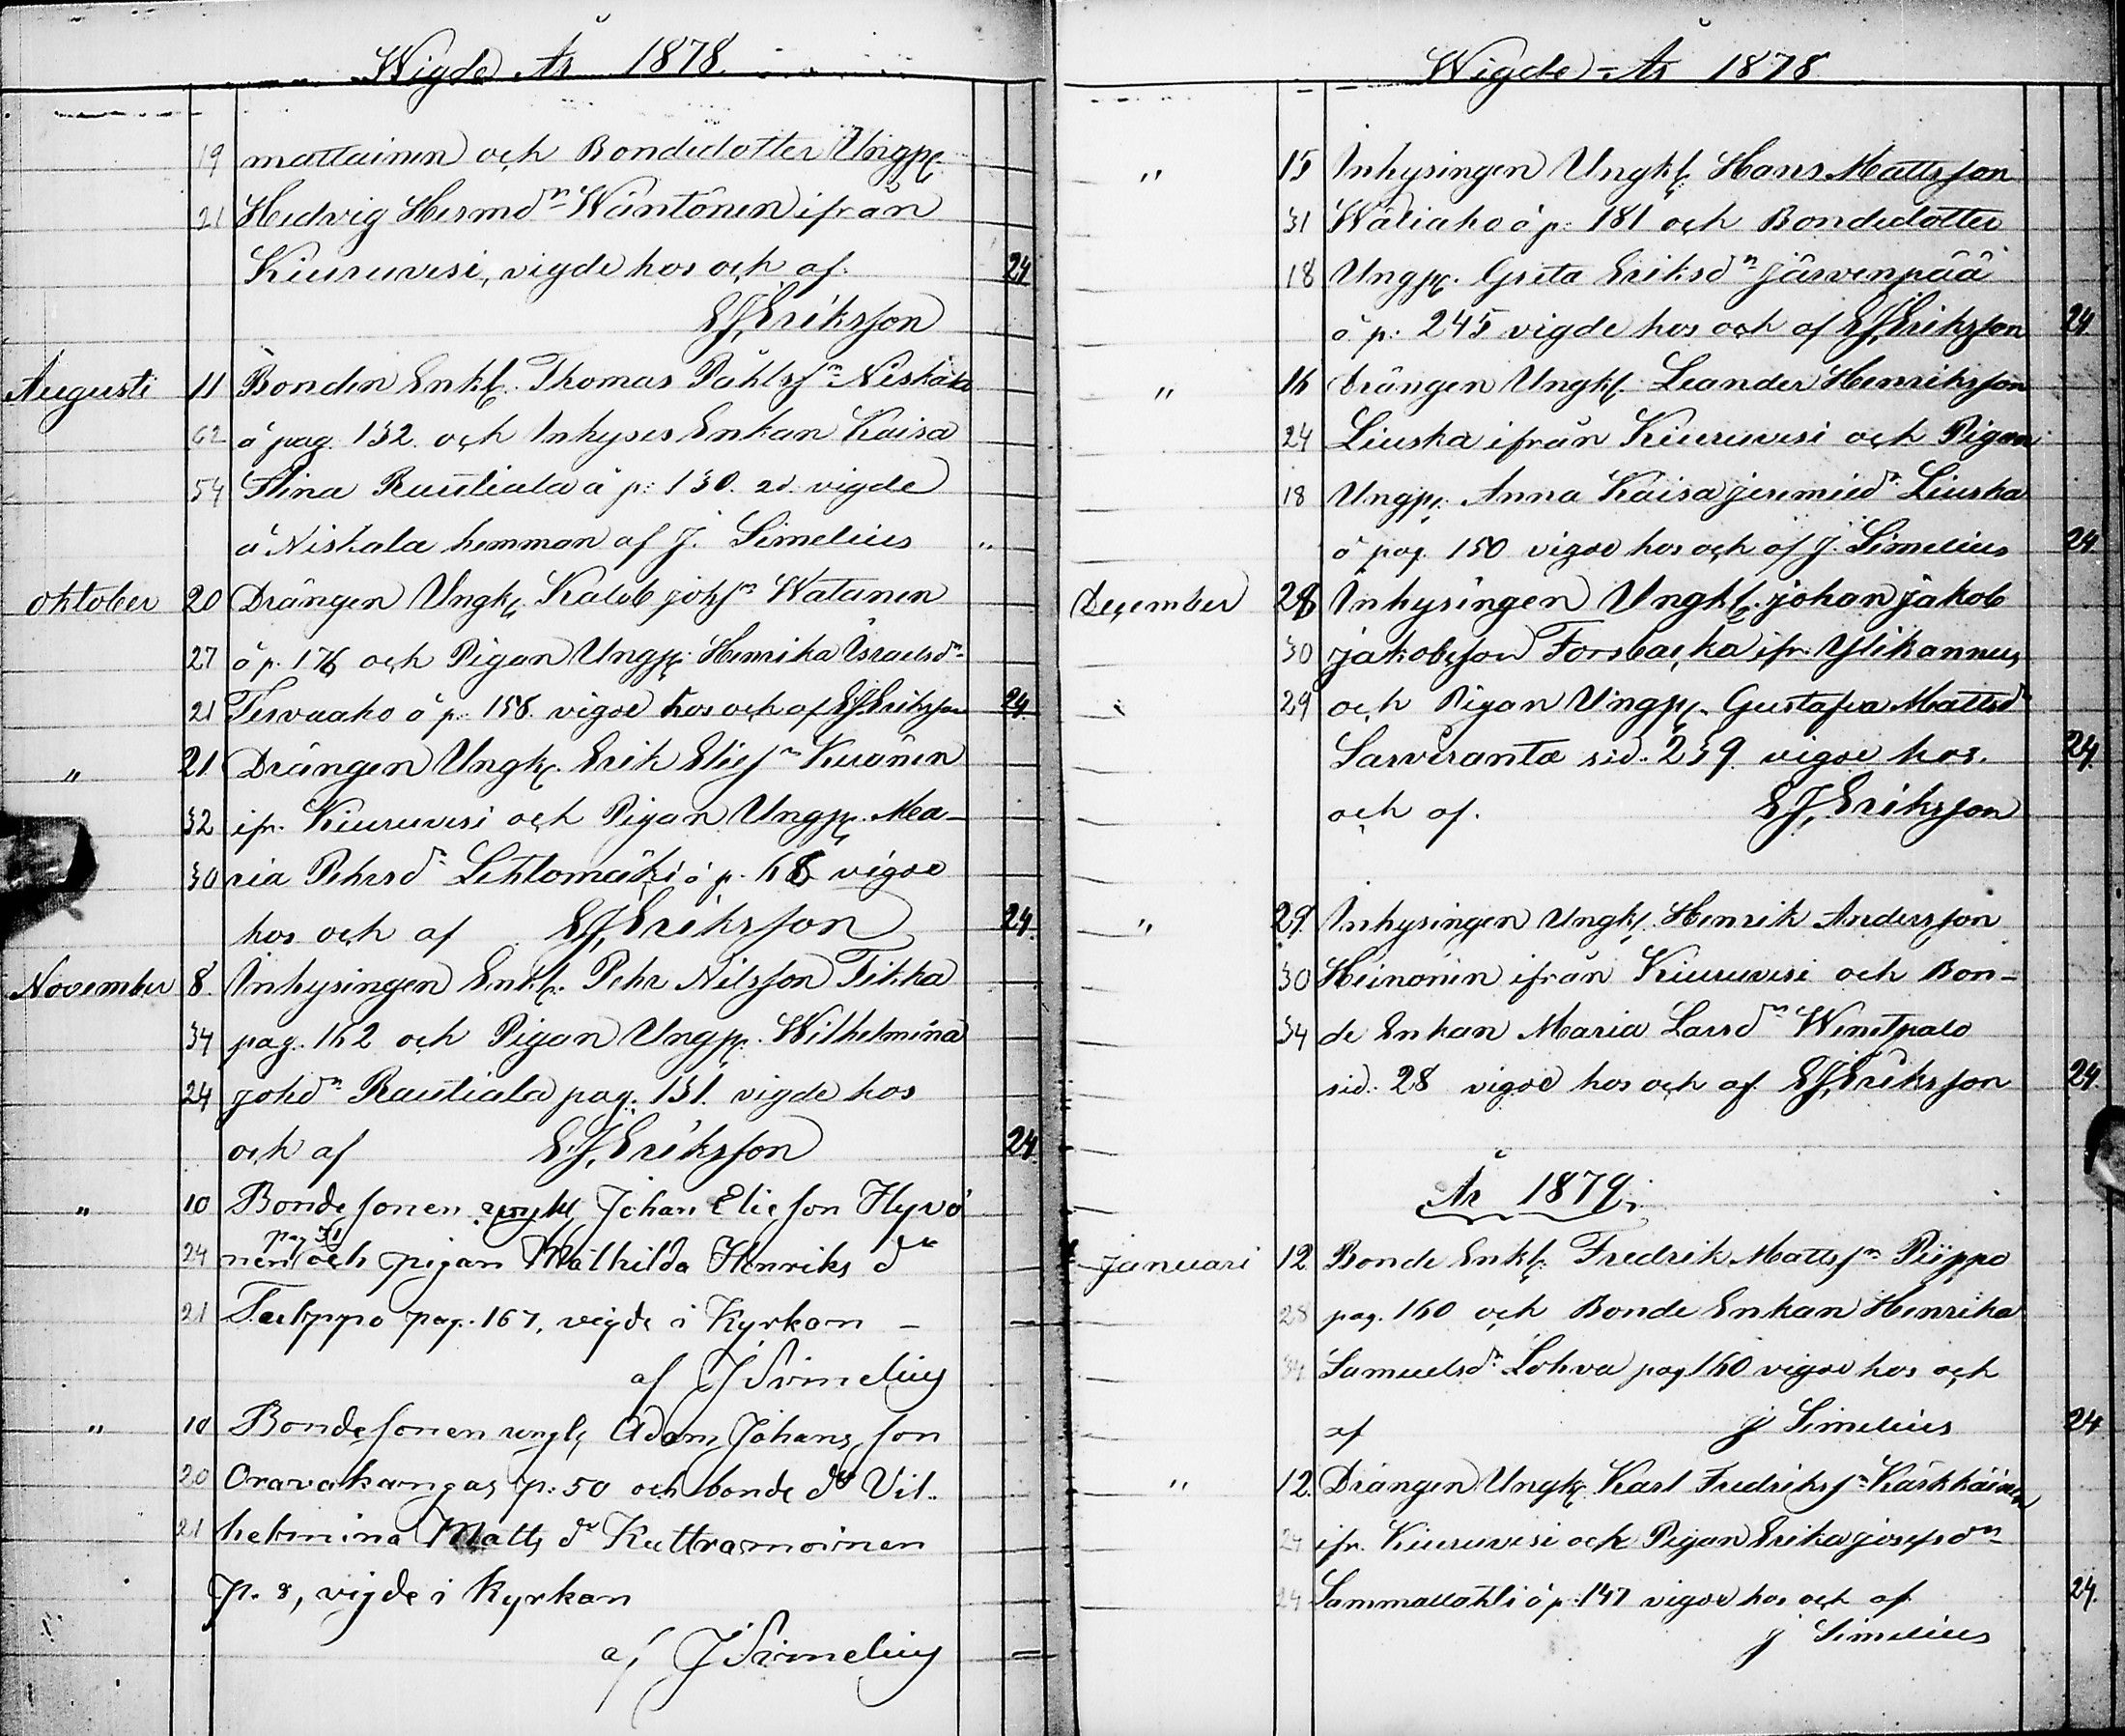 Wigde År 1878.
19 mattainen och Bondedotter Ungp.
21 Hedvig Hermdn Wäntönen ifrån
Kiuruvesi, vigde hos och af 24
E J Eriksson
Augusti 11 Bonden Enkl. Thomas Påhlssn Niskala
62 å pag. 132. och Inhyses Enkan Kaisa
54 Stina Rautiala å p: 130. vigde
å Niskala hemman af J. Simelius "
Oktober 20 Drängen Ungk. Kaleb Johsn Watanen
27 å p. 176 och Pigan Ungp. Henrika Israelsdn
21 Tervaaho å p: 158. vigde hos och af E J Eriksson 24
" 21 Drängen Ungk. Erik Eliesn Kuronen
32 ifr. Kiuruvesi och Pigan Ungp. Ma-
30 ria Pehrsdn Lehtomäki å p. 68 vigde
hos och af E J Eriksson 24.
November 8. Inhysingen Enkl. Pehr Nilsson Tikka
34 pag. 162 och Pigan Ungp. Wilhelmina
24 Johdn Rautiala pag. 131. vigde hos
och af E J Eriksson 24
" 10 Bondesonen ungkl Johan Elieson Hyvö
pag 31
24 nen och pigan Mathilda Henriks dr
21 pag. 167, vigde i Kyrkan —
af J Simelius
" 10 Bondesonen ungk Adam Johans son
20 Oravakangas p. 50 och bonde dr Vil-
21 helmina Matts dr Kuttramoinen
p. 8, vigde i Kyrkan
af J Simelius —
Wigde - År 1878
" 15 Inhysingen Ungkl. Hans Mattsson
31 Wäliaho å p: 181 och Bondedotter
18 Ungp. Greta Eriksdn Järvenpää
å p: 245 vigde hos och af E J Eriksson 24
" 16 Drängen Ungkl. Leander Henriksson
24 Liuska ifrån Kiuruvesi och Pigan
18 Ungp. Anna Kaisa Jeremiedn Liuska
å pag. 150 vigde hos och af J. Simelius 24
December 28 Inhysingen Ungkl. Johan Jakob
30 Jakobsson Forsbacka ifr. Ylikannus
29 och Pigan Ungp. Gustafva Mattsdn
Sarveranta sid. 239 vigde hos. 24.
och af. E J Eriksson
" 29. Inhysingen Ungk. Henrik Andersson
30 Heinonen ifrån Kiuruvesi och Bon-
34 de Enkan Maria Larsdn Wenetpalo
sid: 28 vigde hos och af E J Eriksson 24
År 1879.
Januari 12 Bonde Enkl. Fredrik Mattssn Piippo
28 pag. 160 och Bonde Enkan Henrika
34 Samuelsdn Lohva pag 160 vigde hos och
af J Simelius 24
" 12. Drängen Ungk. Karl Fredrikssn Kärkkäinen
24 ifr. Kiuruvesi och Pigan Erika Josefsdn
24 Sammallahti å p: 147 vigde hos och af 24.
J Simelius